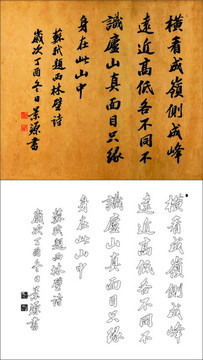 橫看成嶺側成峰
遠近高低各不同不
識廬山真面目只緣
身在此山中
蘇軾題西林壁詩
歲次丁酉冬日源書
橫看成嶺側成峰
遠近高低各不同不
識廬山真面目只緣
身在此山中
蘇軾題西林壁詩
歲次丁酉冬日源書